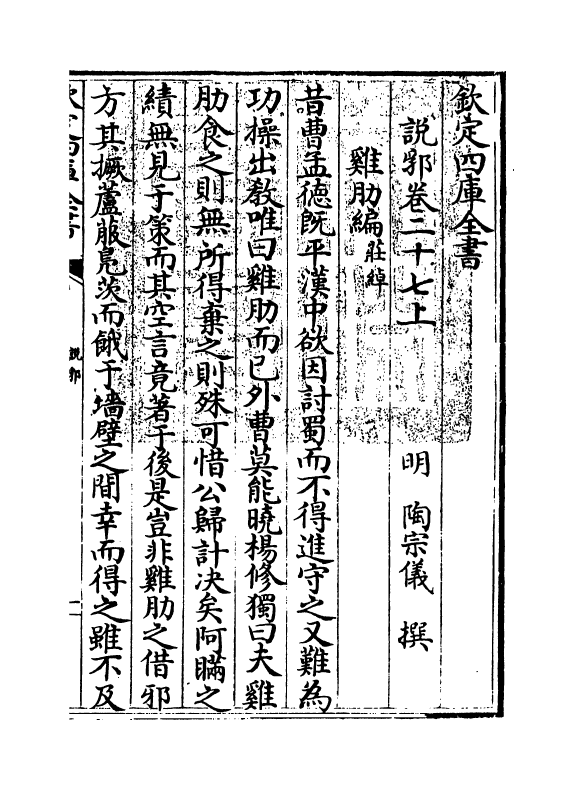 欽定四庫全書
說郛卷二十七上
明 陶宗儀 撰
雞肋編 莊綽
昔曹孟德既平漢中欲因討蜀而不得進守之又難為
功操出教唯曰雞肋而已外曹莫能曉楊修獨曰夫雞
肋食之則無所得棄之則殊可惜公歸計决矣阿瞞之
績無見于策而其空言竟著于後是豈非雞肋之借邪
方其撅蘆菔鳧茨而餓于墻壁之間幸而得之雖不及
欽定四庫全書
說郛
一